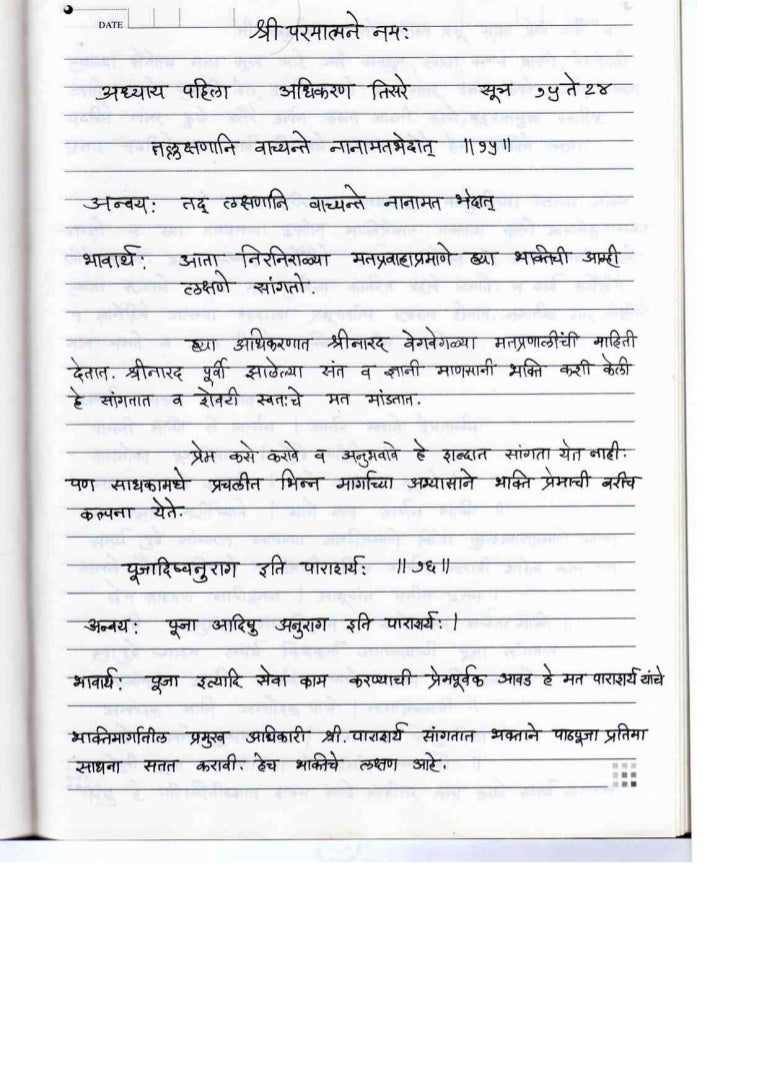 DATE
श्री परमात्मने नमः
अध्याय पहिला अधिकरण तिसरे सूत्र १५ ते २४
तल्लक्षणानि वाच्यन्ते नानामतभेदात् ॥१५॥
अन्वय: तद् लक्षणानि वाच्यन्ते नानामत भेदात्
भावार्थ: आता निरनिराळ्या मतप्रवाहाप्रमाणे ह्या भक्तिची आम्ही
लक्षणे सांगतो.
ह्या अधिकरणात श्रीनारद वेगवेगळ्या मतप्रणालींची माहिती
देतात. श्रीनारद पूर्वी झालेल्या संत व ज्ञानी माणसानी भक्ति कशी केली
हे सांगतात व शेवटी स्वतःचे मत मांडतात.
प्रेम कसे करावे व अनुभवावे हे शब्दात सांगता येत नाही.
पण साधकामधे प्रचलीत भिन्न मार्गाच्या अभ्यासाने भक्ति प्रेमाची बरीच
कल्पना येते.
पूजादिष्वनुराग इति पाराशर्यः ॥१६॥
अन्वय: पूजा आदिषु अनुराग इति पाराशर्यः।
भावार्थ: पूजा इत्यादि सेवा काम करण्याची प्रेमपूर्वक आवड हे मत पाराशर्य यांचे
भक्तिमार्गातील प्रमुख अधिकारी श्री. पाराशर्य सांगतात भक्ताने पाद्यपूजा प्रतिमा
साधना सतत करावी. हेच भक्तिचे लक्षण आहे.